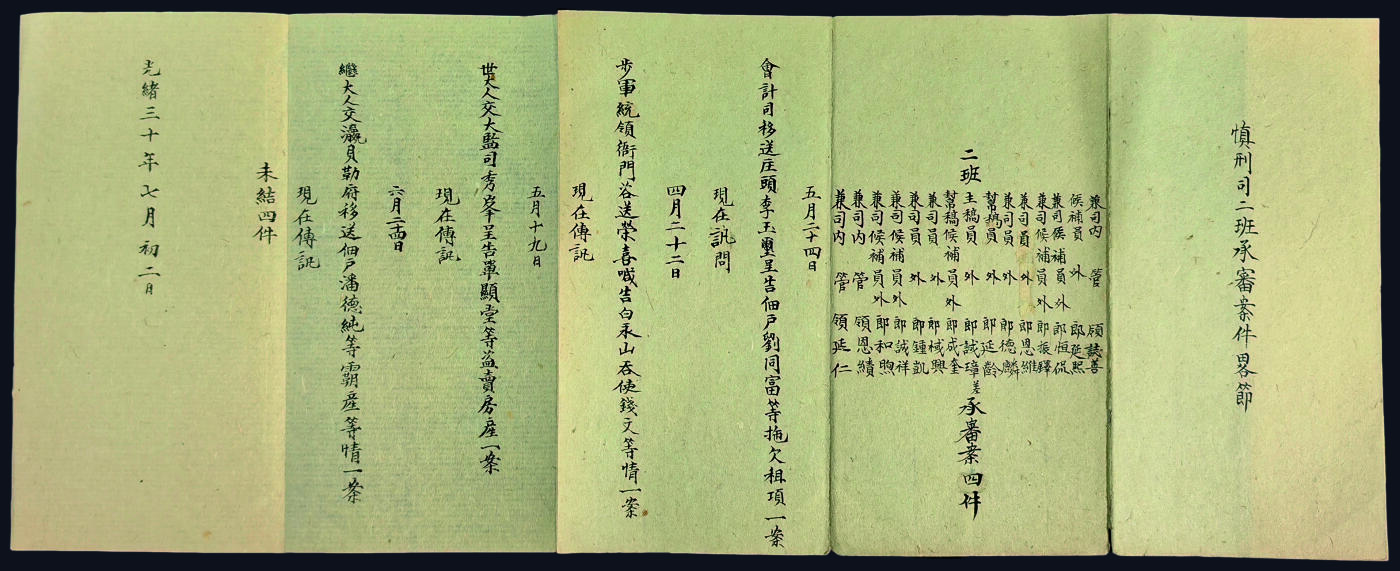 慎刑司二班承審案件畧節
二班
兼司内管領誌善
候補員外郎延熙
兼司候補員外郎恒侃
兼司候補員外郎振鐸
兼司員外郎恩維
兼司員外郎德麟
幫稿員外郎延齡
主稿員外郎誠璋差
幫稿候補員外郎成奎
兼司員外郎棫興
兼司員外郎鍾凱
兼司候補員外郎誠祥
兼司候補員外郎和煦
兼司内管領恩績
兼司内管領延仁
承審案四件
五月二十四日
會計司移送庄頭李玉璽呈告佃戶劉同富等拖欠租項一案
現在訊問
四月二十二日
步軍統領衙門咨送榮喜喊告白永山吞使錢文等情一案
現在傳訊
五月十九日
世大人交大監司秀峯呈告單顯堂等盜賣房產一案
現在傳訊
六月二十四日
繼大人交瀛貝勒府移送佃戶潘德純等霸產等情一案
現在傳訊
未結四件
光緒三十年七月初二日